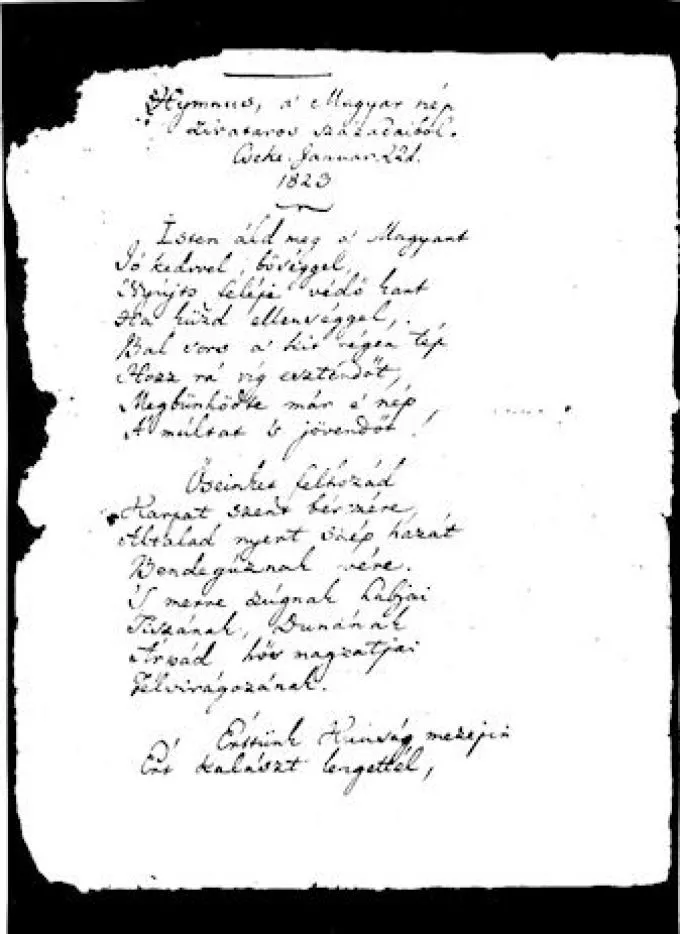 Hymnus, a' Magyar nép
zivataros századaiból.
Cseke. Januar. 22d.
1823
Isten áld meg a' Magyart
Jó kedvvel, bőséggel,
Nyújts feléje védő kart
Ha küzd ellenséggel,
Bal sors a' kit régen tép
Hozz rá víg esztendőt,
Megbünhödte már e' nép
A' múltat 's jövendőt!
Őseinket felhozád
Kárpát szent bérczére,
Általad nyert szép hazát
Bendegúznak vére.
'S merre zúgnak habjai
Tiszának, Dunának
Árpád hős magzatjai
Felvirágozának.
Értünk Kúnság mezején
Ért kalászt lengettél,